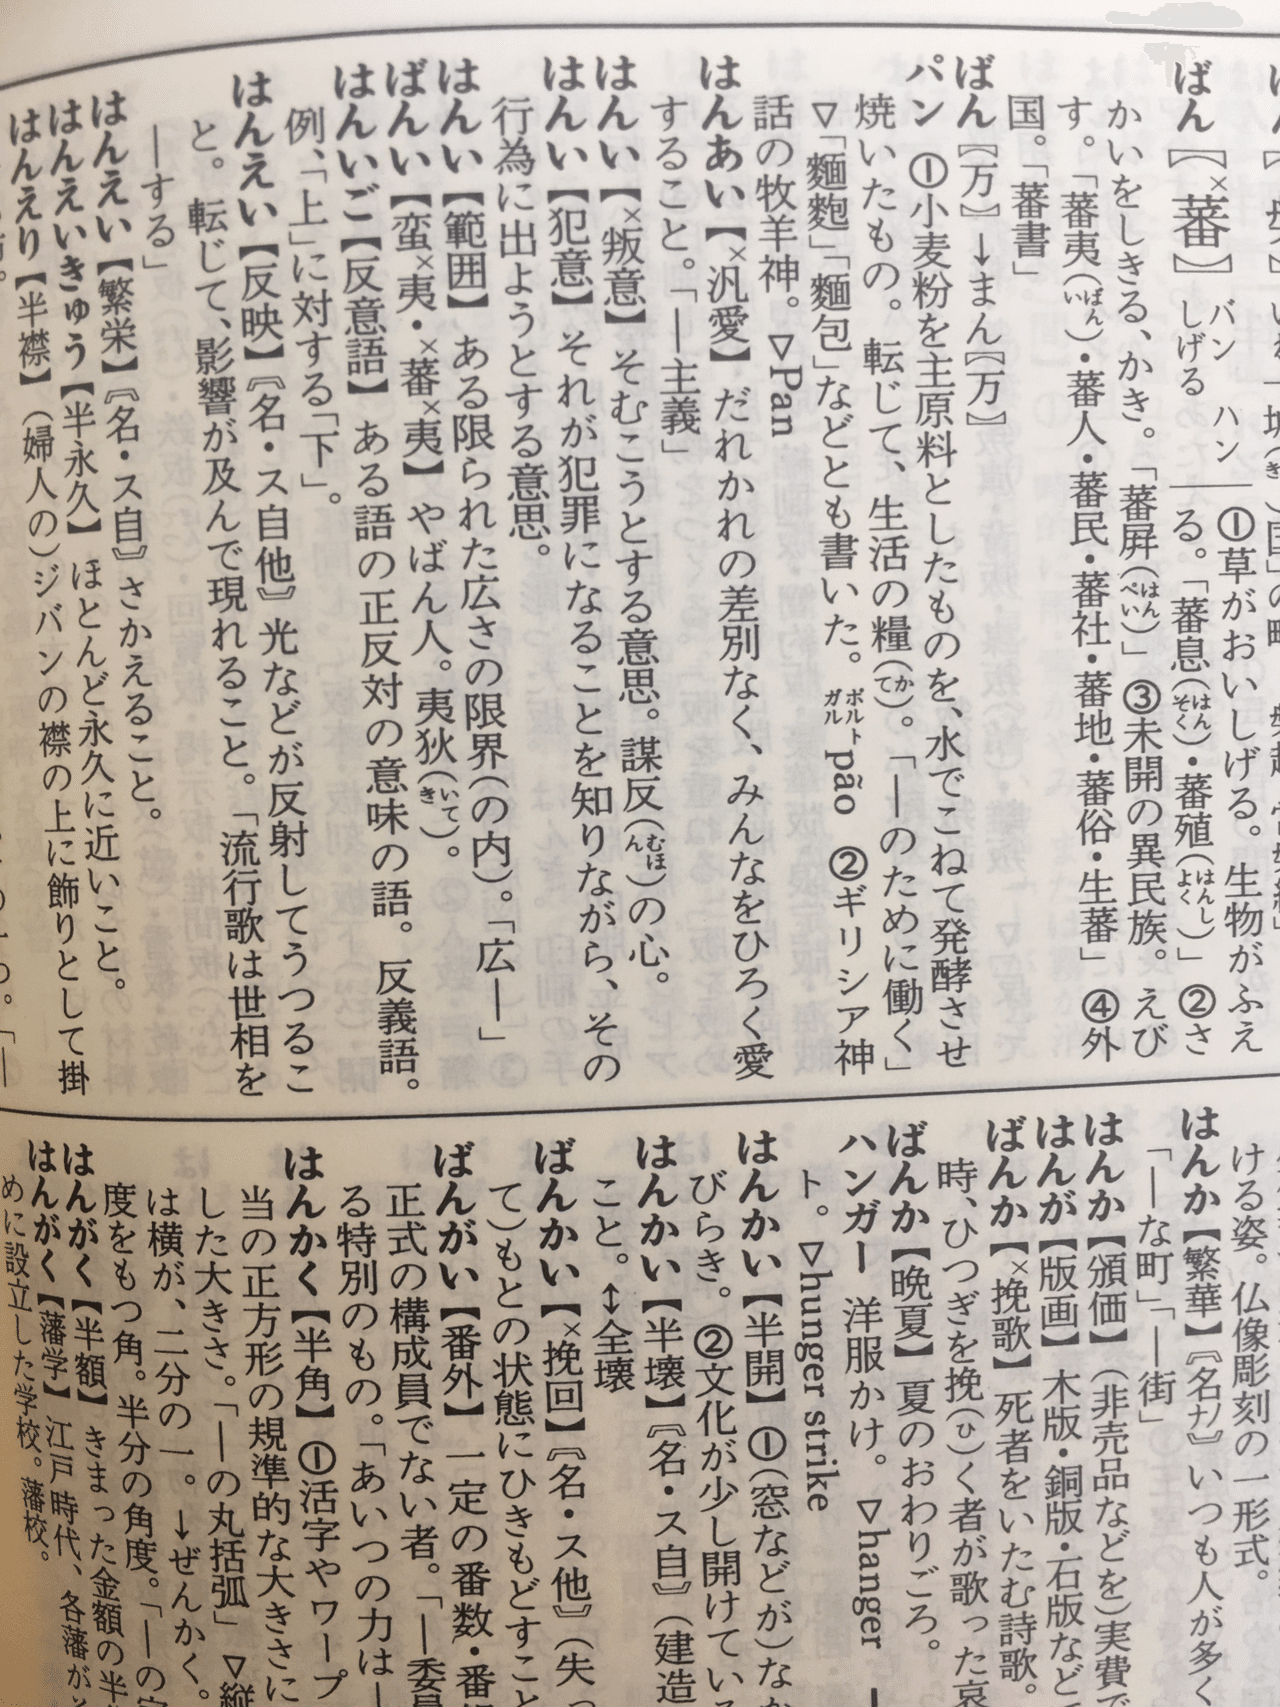 ばん【×蕃】 バン ハン しげる ①草がおいしげる。生物がふえ
る。「蕃息(はんそく)・蕃殖(はんしょく)」②さ
かいをしきる、かき。「蕃屛(はんぺい)」③未開の異民族。えび
す。「蕃夷(ばんい)・蕃人・蕃民・蕃社・蕃地・蕃俗・生蕃」④外
国。「蕃書」
ばん【万】→まん【万】
パン ①小麦粉を主原料としたものを、水でこねて発酵させ
焼いたもの。転じて、生活の糧(かて)。「―のために働く」
▽「麵麭」「麵包」などとも書いた。ポルトガル pão ②ギリシア神
話の牧羊神。▽Pan
はんあい【×汎愛】だれかれの差別なく、みんなをひろく愛
すること。「―主義」
はんい【×叛意】そむこうとする意思。謀反(むほん)の心。
はんい【犯意】それが犯罪になることを知りながら、その
行為に出ようとする意思。
はんい【範囲】ある限られた広さの限界(の内)。「広―」
ばんい【蛮×夷・×蕃×夷】やばん人。夷狄(いてき)。
はんいご【反意語】ある語の正反対の意味の語。反義語。
例、「上」に対する「下」。
はんえい【反映】《名・ス自他》光などが反射してうつるこ
と。転じて、影響が及んで現れること。「流行歌は世相を
―する」
はんえい【繁栄】《名・ス自》さかえること。
はんえいきゅう【半永久】ほとんど永久に近いこと。
はんえり【半襟】(婦人の)ジバンの襟の上に飾りとして掛
ける姿。仏像彫刻の一形式。
はんか【繁華】《名ナノ》いつも人が多く
「―な町」「―街」
はんか【頒価】(非売品などを)実費で
はんが【版画】木版・銅版・石版など
ばんか【×挽歌】死者をいたむ詩歌。
時、ひつぎを挽(ひ)く者が歌った哀
ばんか【晩夏】夏のおわりごろ。
ハンガー 洋服かけ。▽hanger ―
ト。▽hunger strike
はんかい【半開】①(窓などが)なか
びらき。②文化が少し開けている
はんかい【半壊】《名・ス自》(建造
こと。↔全壊
ばんかい【×挽回】《名・ス他》(失っ
て)もとの状態にひきもどすこと
ばんがい【番外】一定の番数・番組
正式の構成員でない者。「―委員
る特別のもの。「あいつの力は―
はんかく【半角】①活字やワープ
当の正方形の規準的な大きさに
した大きさ。「―の丸括弧」▽縦
は横が、二分の一。→ぜんかく。
度をもつ角。半分の角度。「―の
はんがく【半額】きまった金額の半
はんがく【藩学】江戸時代、各藩がそ
めに設立した学校。藩校。